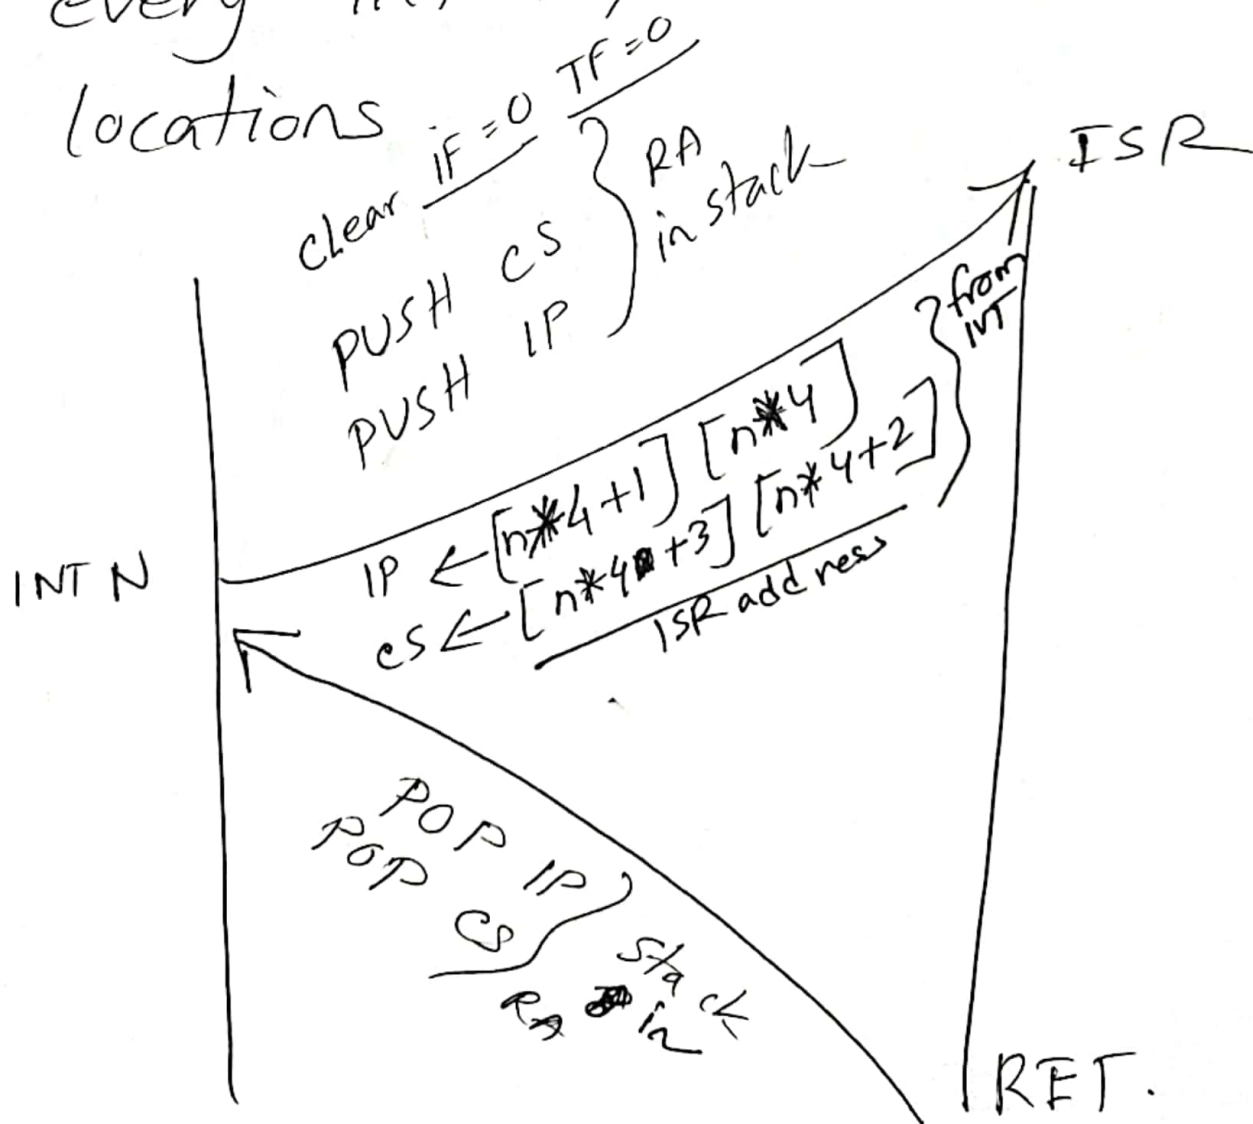 every
locations
clear IF=0 TF=0
PUSH CS
PUSH IP
RA
in stack
ISR
from
IVT
INT N
IP ← [n*4+1] [n*4]
CS ← [n*4+3] [n*4+2]
ISR address
POP IP
POP CS
RA in
stack
RET.